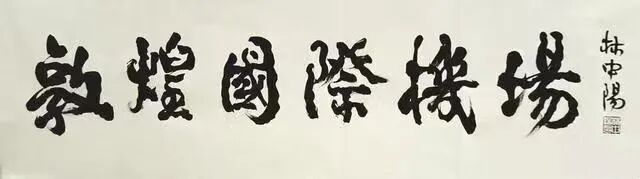 敦煌國際機場
林中陽